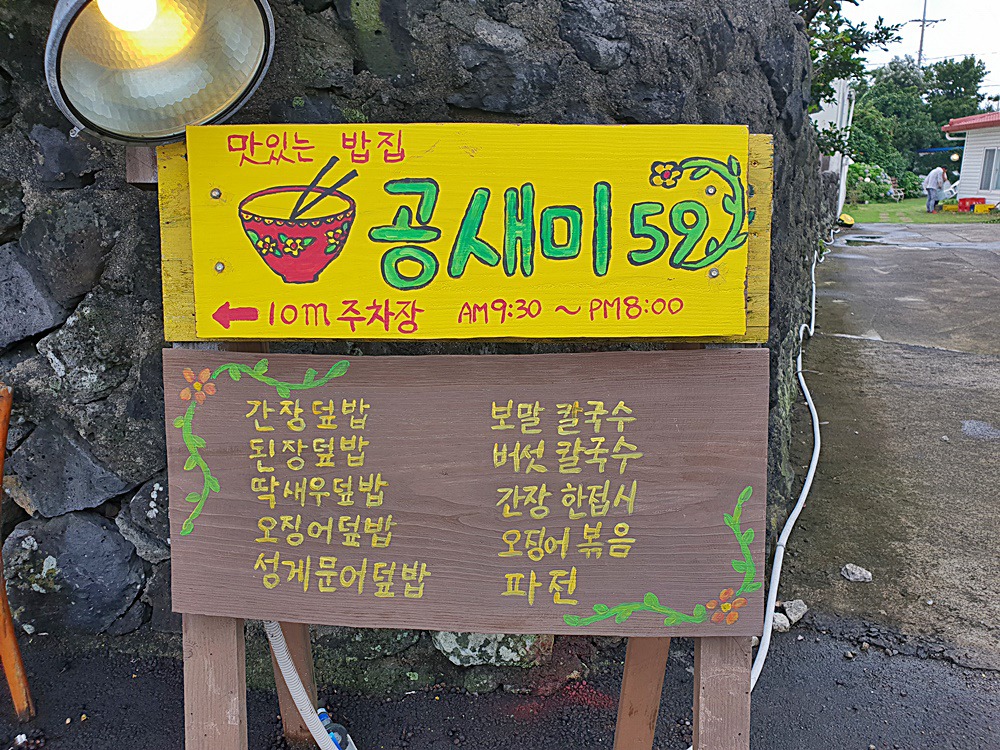 맛있는 밥집
공새미 59
← 10m 주차장 AM9:30 ~ PM8:00
간장덮밥
된장덮밥
딱새우덮밥
오징어덮밥
성게문어덮밥
보말 칼국수
버섯 칼국수
간장 한접시
오징어 볶음
파전